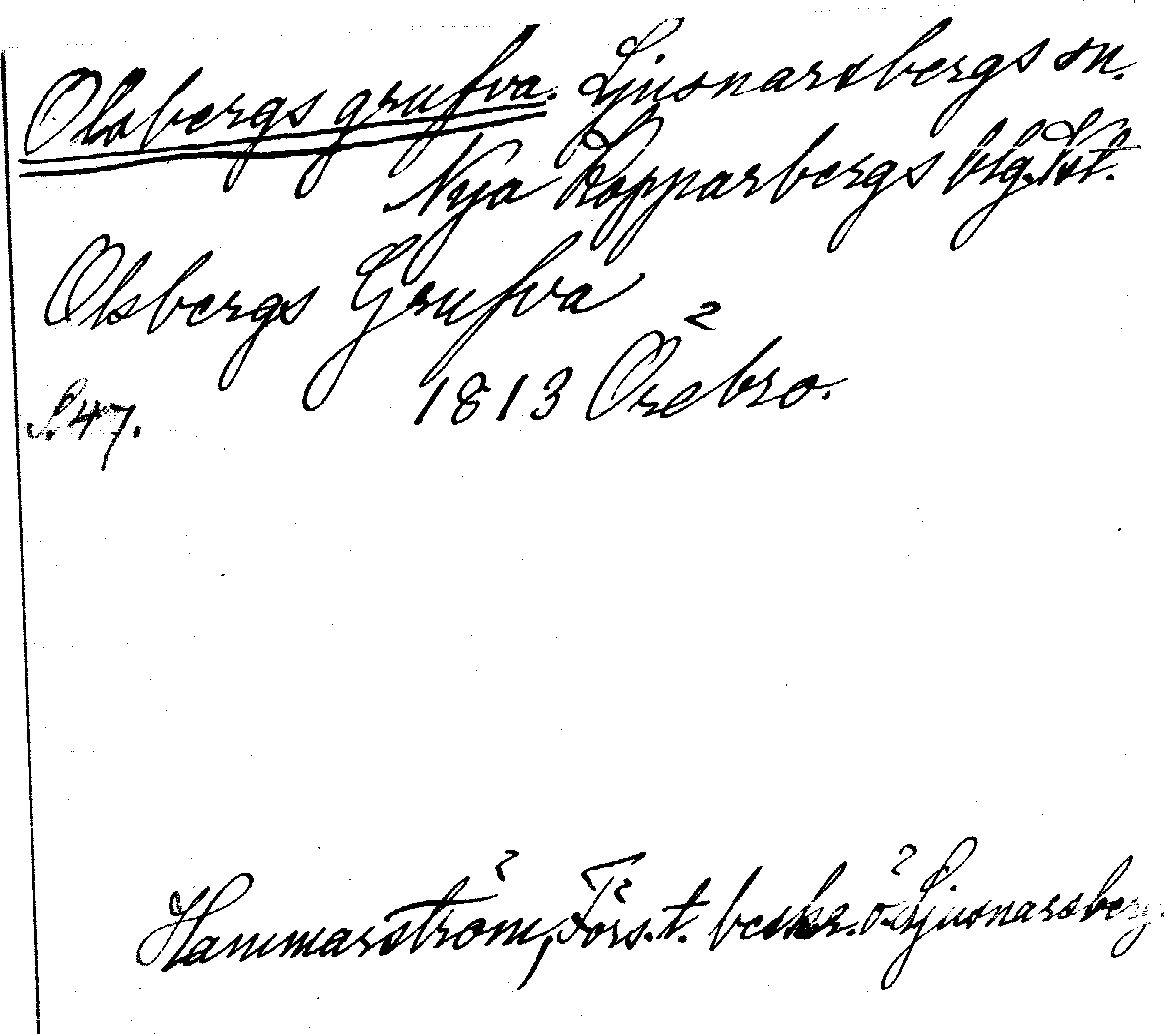 Olsbergs grufva. Ljusnarsbergs sn.
Nya Kopparbergs blg. Vst.
Olsbergs Grufva
S. 47. 1813 Örebro.
Hammarström, Förs. t. beskr. ö. Ljusnarsberg.